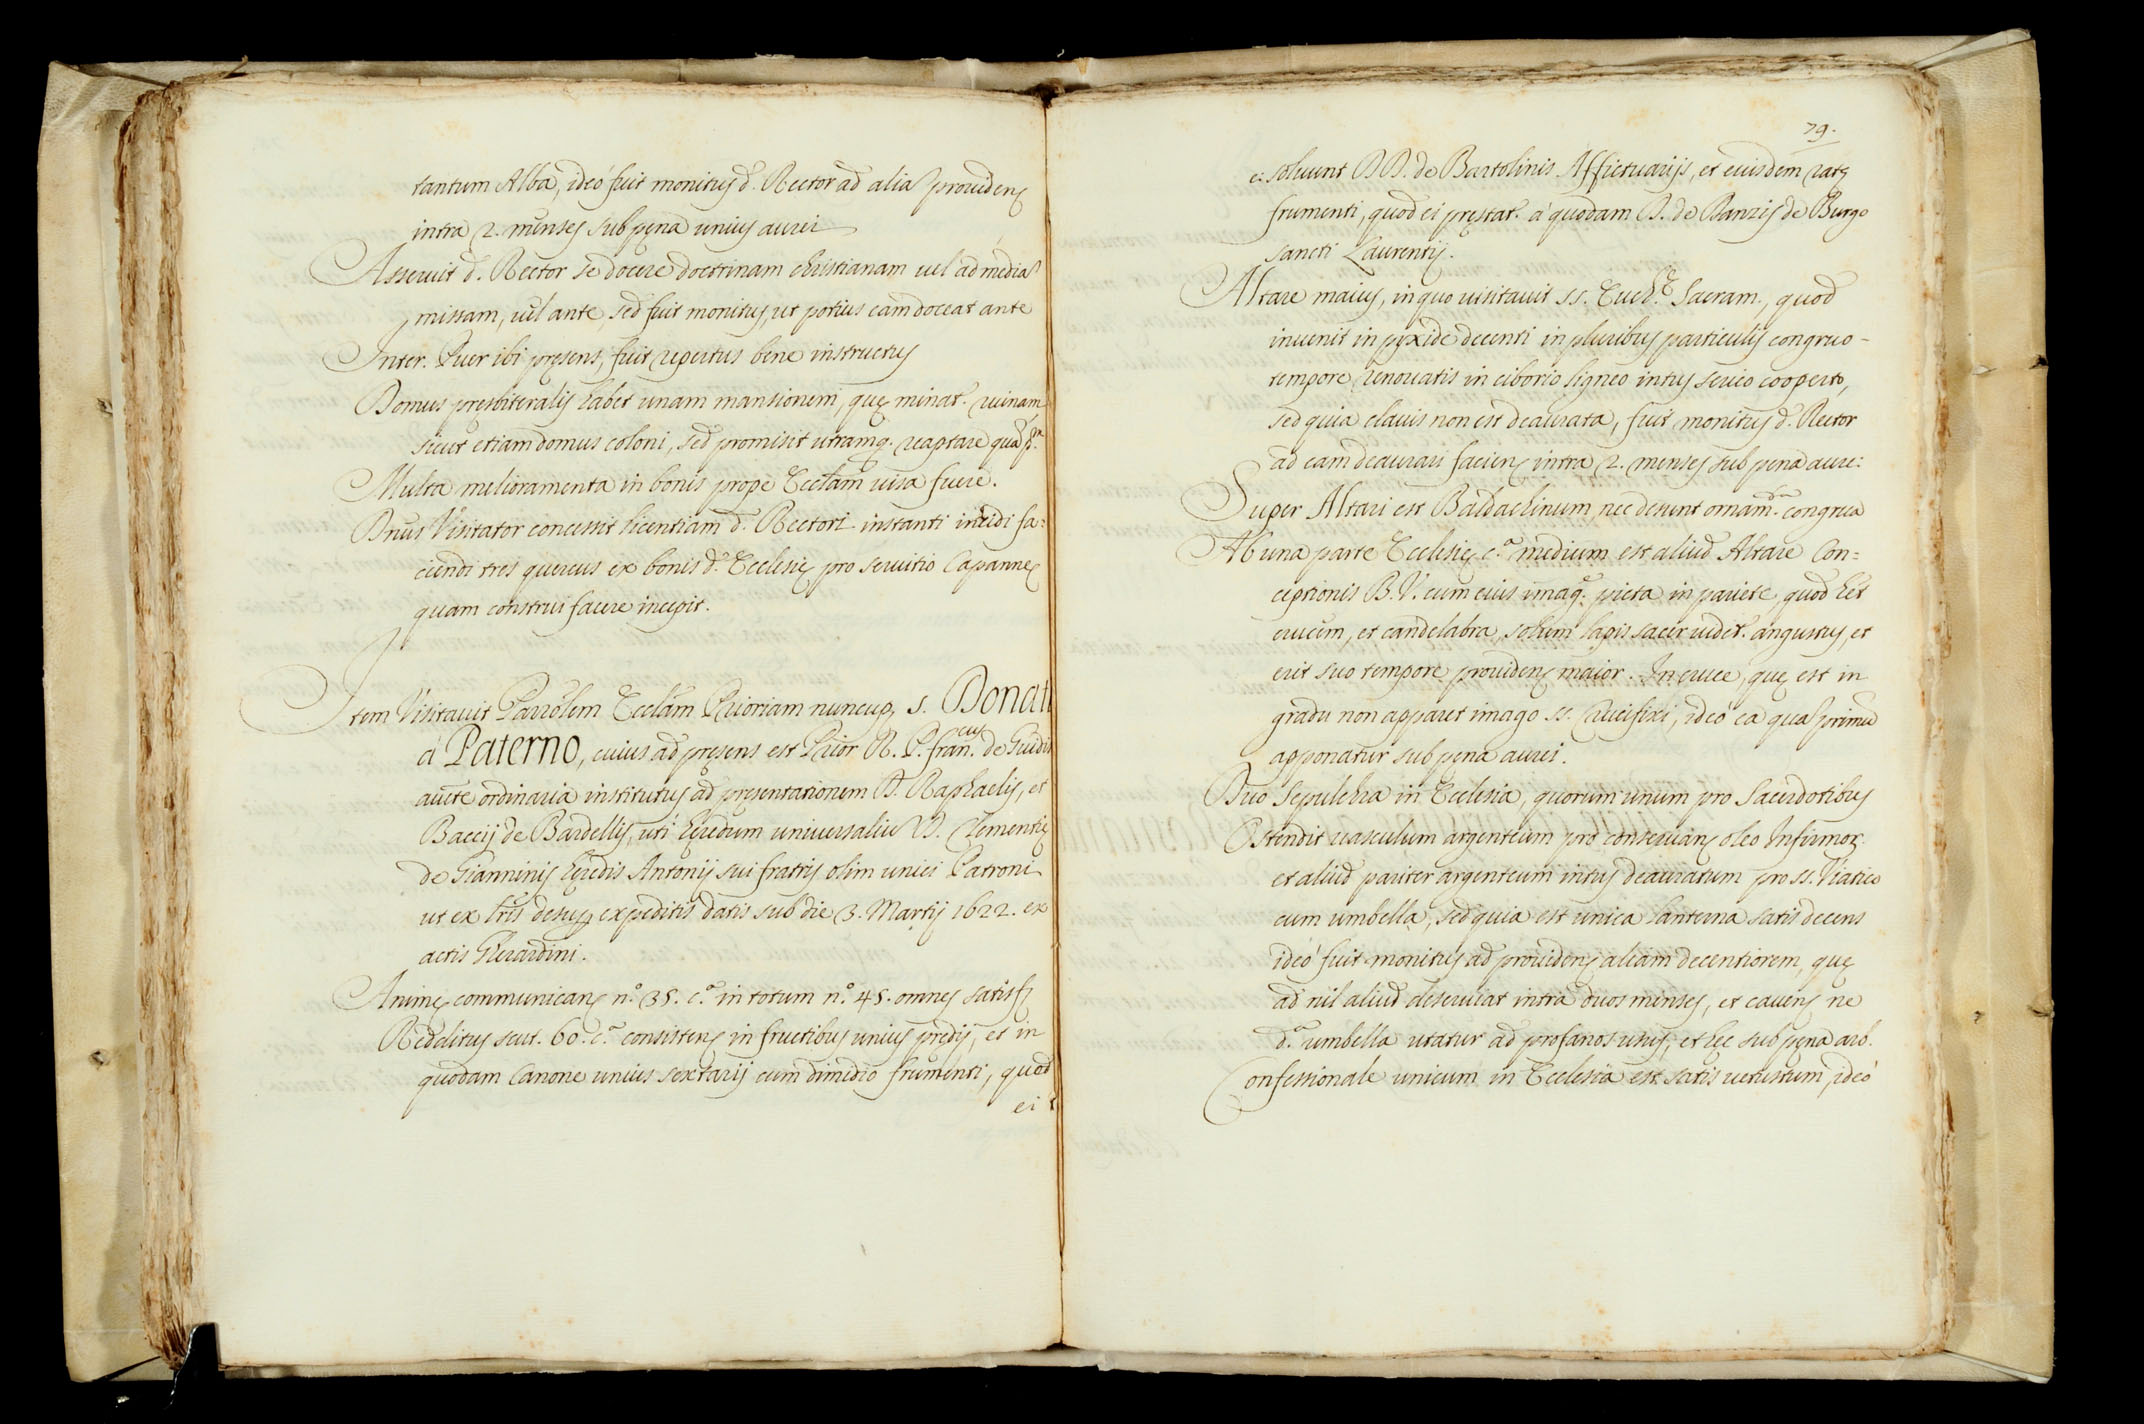 tantum Alba, ideó fuit monitus d. Rector ad alia providens
intra 2. menses sub pęna unius aurei
Asseruit d. Rector se docere doctrinam christianam vel ad media
missam, vel ante, sed fuit monitus, ut potius eam doceat ante
Inter. Puer ibi pręsens, fuit repertus bene instructus
Domus pręsbiteralis habet unam mansionem, quę minat. ruinam
sicut etiam domus coloni, sed promisit utramq. reaptare
Multa melioramenta in bonis prope Eccłam visa fuere.
Dnus Visitator concessit licentiam d. Rectori instanti incidi fa:
ciendi tres quercus ex bonis d. Ecclesię pro servitio Capannę
quam construi facere incepit.
Item Visitavit Parrolem Eccłam Prioriam nuncup. s. Donati
á Paterno, cuius ad pręsens est Prior R. P. Fran.cus de Guidis
aucte ordinaria institutus ad pręsentationem D. Raphaelis, et
Baccij de Bardellis, uti hęredum universaliu D. Clementię
de Gianninis hęredis Antonij sui fratris olim unici Patroni
ut ex lris desup. expeditis datis sub die 3. Martij 1622. ex
actis Gherardini.
Animę communicans n.º 35. c.ª in totum n.º 45. omnes satisf.
Redditus scut. 60. c.ª consistens in fructibus unius prędij, et in
quodam Canone unius sextarij cum dimidio frumenti, quod
ei
79.
ei solvunt DD. de Bartolinis Affictuarijs, et eiusdem ratę
frumenti, quod ei pręstat. á quodam D. de Banzis de Burgo
sancti Laurentij.
Altare maius, in quo visitavit ss. Euch.ę Sacram., quod
invenit in pyxide decenti in pluribus particulis congruo-
tempore renovatis in ciborio ligneo intus serico cooperto,
sed quia clavis non est deaurata, fuit monitus d. Rector
ad eam deaurari faciens intra 2. menses sub pena aurei
Super Altari est Baldachinum nec desunt ornam.ta congrua
Ab una parte Ecclesię c.ª medium est aliud Altare Con=
ceptionis B. V. cum eius imag.e picta in pariete, quod het
crucem, et candelabra, solum lapis sacer videt. angustus, et
erit suo tempore providens maior. In cruce, quę est in
gradu non apparet imago ss. Crucifixi, ideó ea qua primu
apponatur sub pena aurei.
Duo Sepulchra in Ecclesia, quorum unum pro Sacerdotibus
Ostendit vasculum argenteum pro conservans oleo Infirmor.
et aliud pariter argenteum intus deauratum pro ss. Viatico
cum umbella, sed quia est unica lanterna satis decens
ideó fuit monitus ad providens aliam decentiorem, quę
ad nil aliud deserviat intra duos menses, et cavens ne
d.ª umbella utatur ad profanos usus, et hęc sub pęna arb.
Confessionale unicum in Ecclesia est satis vetustum, ideó